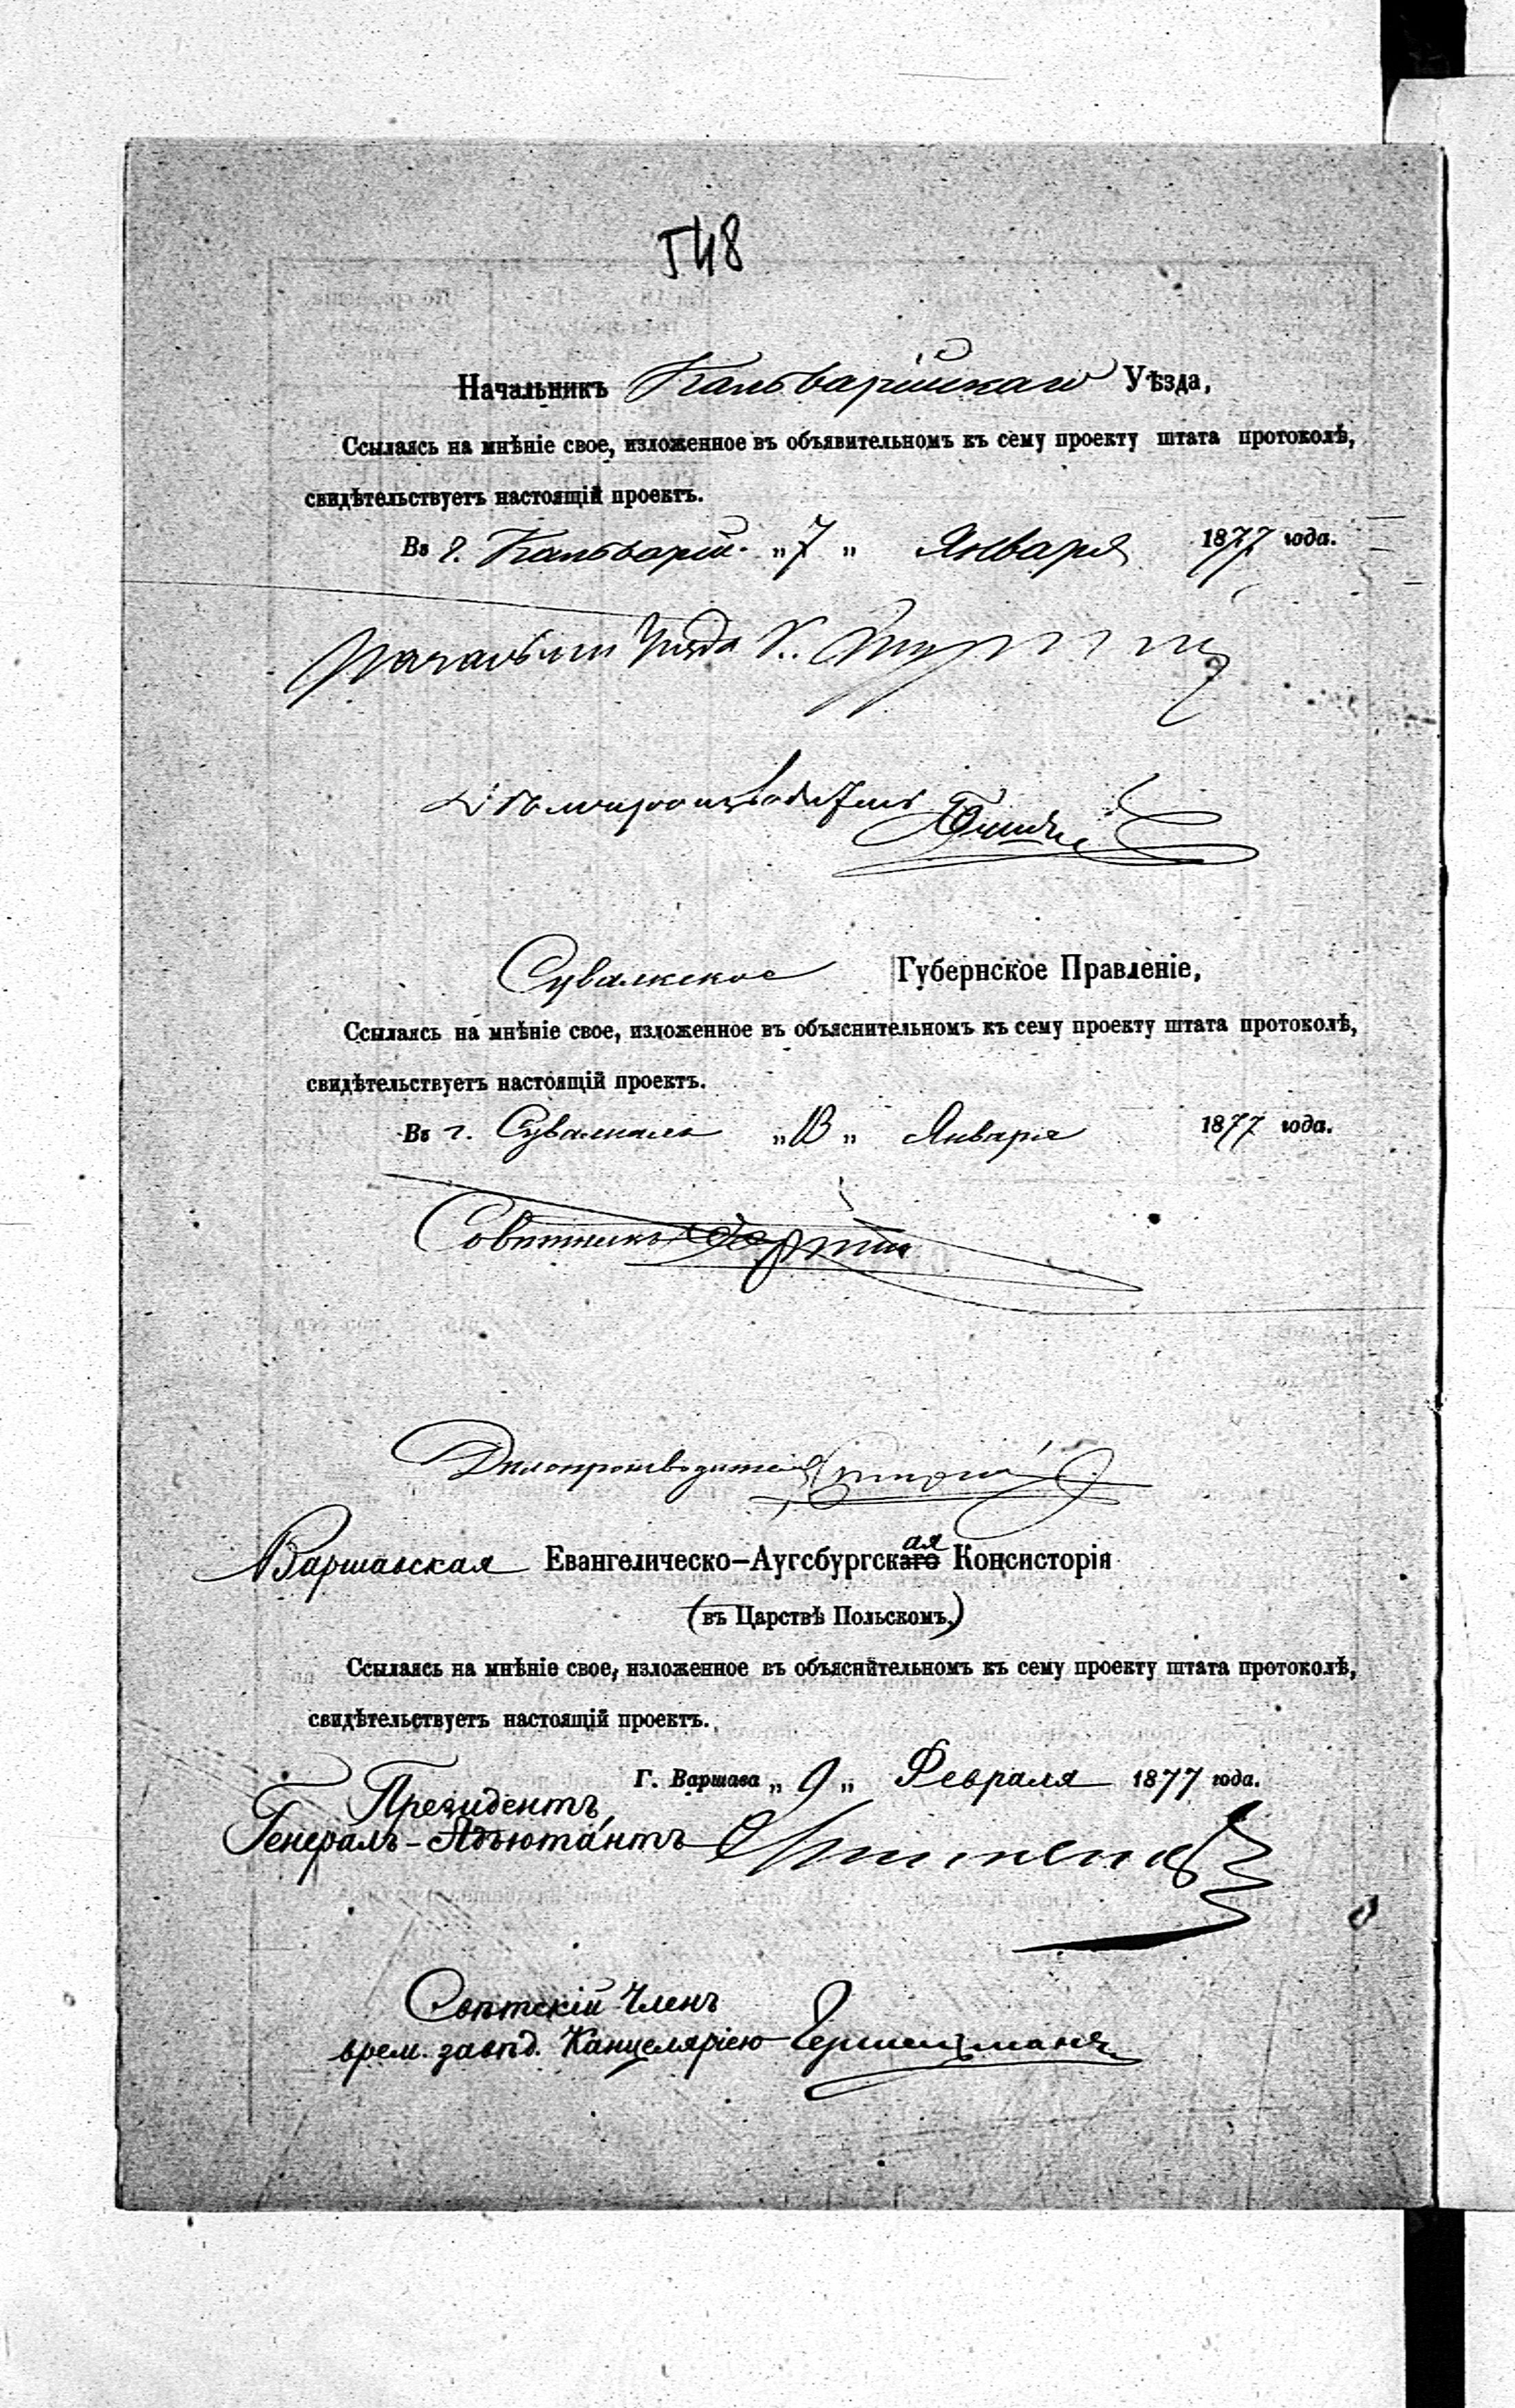 548
Начальникъ Кальварійскаго Уѣзда,
Ссылаясь на мнѣніе свое, изложенное въ объявительномъ къ сему проекту штата протоколѣ,
свидѣтельствуетъ настоящій проектъ.
Въ г. Кальваріи. „7„ Января 1877 года.
Начальникъ Уѣзда
Дѣлопроизводитель
Сувалкское Губернское Правленіе,
Ссылаясь на мнѣніе свое, изложенное въ объяснительномъ къ сему проекту штата протоколѣ,
свидѣтельствуетъ настоящій проектъ.
Въ г. Сувалкахъ „13„ Января 1877 года.
Совѣтникъ
Дѣлопроизводитель
Варшавская Евангелическо-Аугсбургская Консисторія
(въ Царствѣ Польскомъ.)
Ссылаясь на мнѣніе свое, изложенное въ объяснительномъ къ сему проекту штата протоколѣ,
свидѣтельствуетъ настоящій проектъ.
Г. Варшава „9„ Февраля 1877 года.
Президентъ,
Генералъ-Адъютантъ
Свѣтскій Членъ
врем. завѣд. Канцеляріею